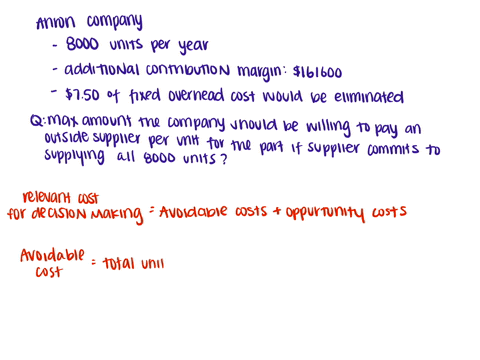 Anron company
- 8000 units per year
- additional contribution margin: $161600
- $7.50 of fixed overhead cost would be eliminated
Q: max amount the company should be willing to pay an
outside supplier per unit for the part if supplier commits to
supplying all 8000 units?
relevant cost
for decision making = Avoidable costs + oppurtunity costs
Avoidable
cost = total unit